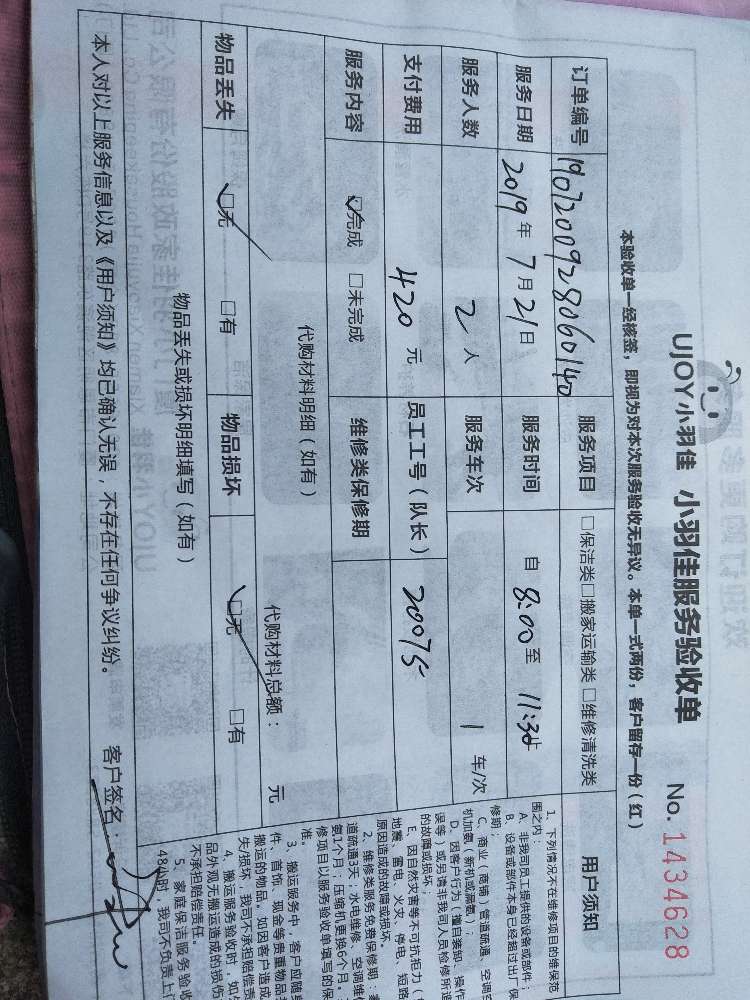 UJOY小羽佳 小羽佳服务验收单 No. 1434628
本验收单一经核签，即视为对本次服务验收无异议。本单一式两份，客户留存一份（红）
订单编号 190720092806014 服务项目 □保洁类□搬家运输类 □维修清洗类
服务日期 2019年7月21日 服务时间 自 8:00 至 11:30止
服务人数 2人 服务车次 1 车/次
支付费用 420元 员工工号（队长） 20075
服务内容 ☑完成 □未完成 维修类保修期
代购材料明细（如有） 代购材料总额： 元
物品丢失 ☑无 □有 物品损坏 ☑无 □有
物品丢失或损坏明细填写（如有）
本人对以上服务信息以及《用户须知》均已确认无误，不存在任何争议纠纷。 客户签名：
用户须知
1、下列情况不在维修项目的维保范
围之内：
A、非我司员工提供的设备或部件；
B、设备或部件本身已经超过出厂保
修期；
C、商业（商铺）管道疏通、空调空
机加氨（新机或漏氨）；
D、因客户行为（擅自装卸、操作
误等）或另请非我司人员检修所造
的故障或损坏；
E、因自然灾害等不可抗拒力（
地震、雷电、火灾、停电、短路
原因造成的故障或损坏。
2、维修类服务免费保修期：
道疏通3天；水电维修、空调维
氨1个月；压缩机更换6个月。
修项目以服务验收单填写的保
3、搬运服务中，客户应随身
件、首饰、现金等贵重物品
搬运的物品，如因客户造成
失/损坏，我司不承担赔偿责
4、搬运服务验收时，如
品外观无搬运造成的损伤
不承担赔偿责任。
5、家庭保洁服务验收
48小时，我司不负责上